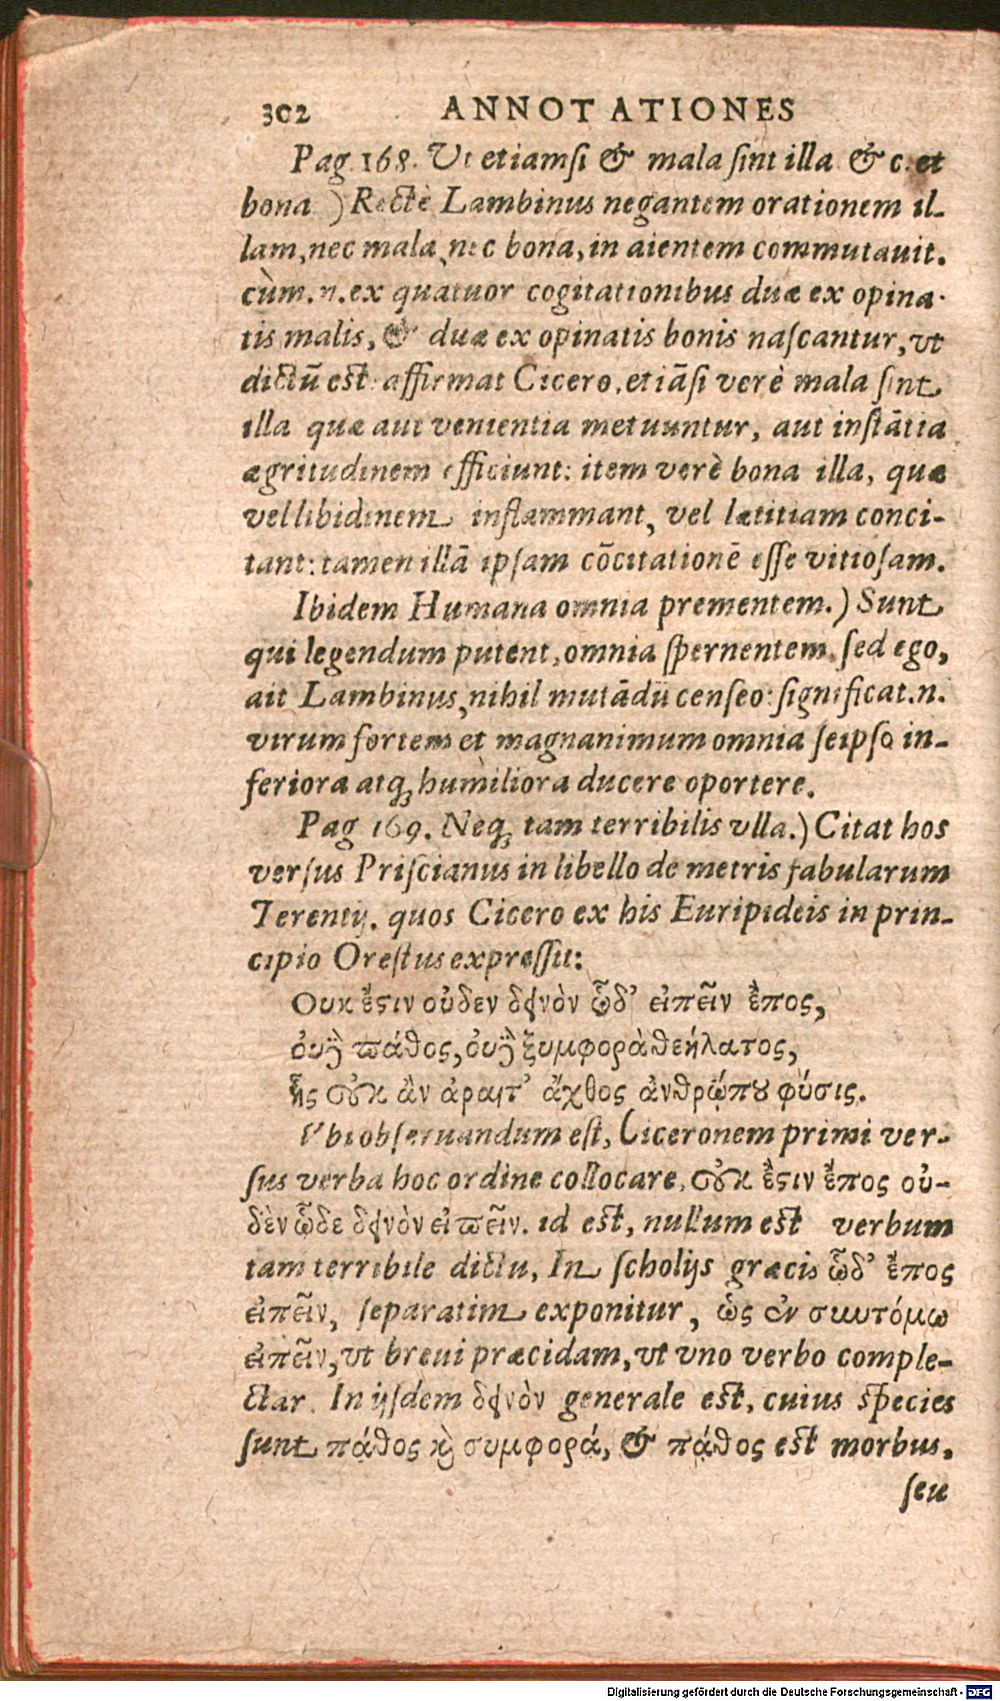 302 ANNOTATIONES
Pag. 168. Ut etiamsi & mala sint illa & c. et
bona.) Rectè Lambinus negantem orationem il-
lam, nec mala, nec bona, in aientem commutauit.
cùm. n. ex quatuor cogitationibus duæ ex opina-
tis malis, & duæ ex opinatis bonis nascantur, vt
dictū est: affirmat Cicero, etiāsi verè mala sint
illa quæ aut venientia metuuntur, aut instātia
ægritudinem efficiunt: item verè bona illa, quæ
vel libidinem inflammant, vel lætitiam conci-
tant: tamen illā ipsam cōcitationē esse vitiosam.
Ibidem Humana omnia prementem.) Sunt
qui legendum putent, omnia spernentem. sed ego,
ait Lambinus, nihil mutādū censeo: significat. n.
virum fortem et magnanimum omnia seipso in-
feriora atq; humiliora ducere oportere.
Pag 169. Neq; tam terribilis vlla.) Citat hos
versus Priscianus in libello de metris fabularum
Terentij. quos Cicero ex his Euripideis in prin-
cipio Orestus expressit:
Ουκ ἔστιν οὐδεν δεινὸν ὧδ' εἰπεῖν ἔπος,
οὐδὲ πάθος, οὐδὲ ξυμφορὰ θεήλατος,
ἧς οὐκ ἂν ἀραιτ' ἄχθος ἀνθρώπου φύσις.
Vbi obseruandum est, Ciceronem primi ver-
sus verba hoc ordine collocare, οὐκ ἔστιν ἔπος οὐ-
δὲν ὧδε δεινὸν εἰπεῖν. id est, nullum est verbum
tam terribile dictu, In scholijs græcis ὧδ' ἔπος
εἰπεῖν, separatim exponitur, ὡς ἐν συντόμω
εἰπεῖν, vt breui præcidam, vt vno verbo comple-
ctar. In ijsdem δεινὸν generale est, cuius species
sunt πάθος καὶ συμφορά, & πάθος est morbus,
seu
Digitalisierung gefördert durch die Deutsche Forschungsgemeinschaft - DFG